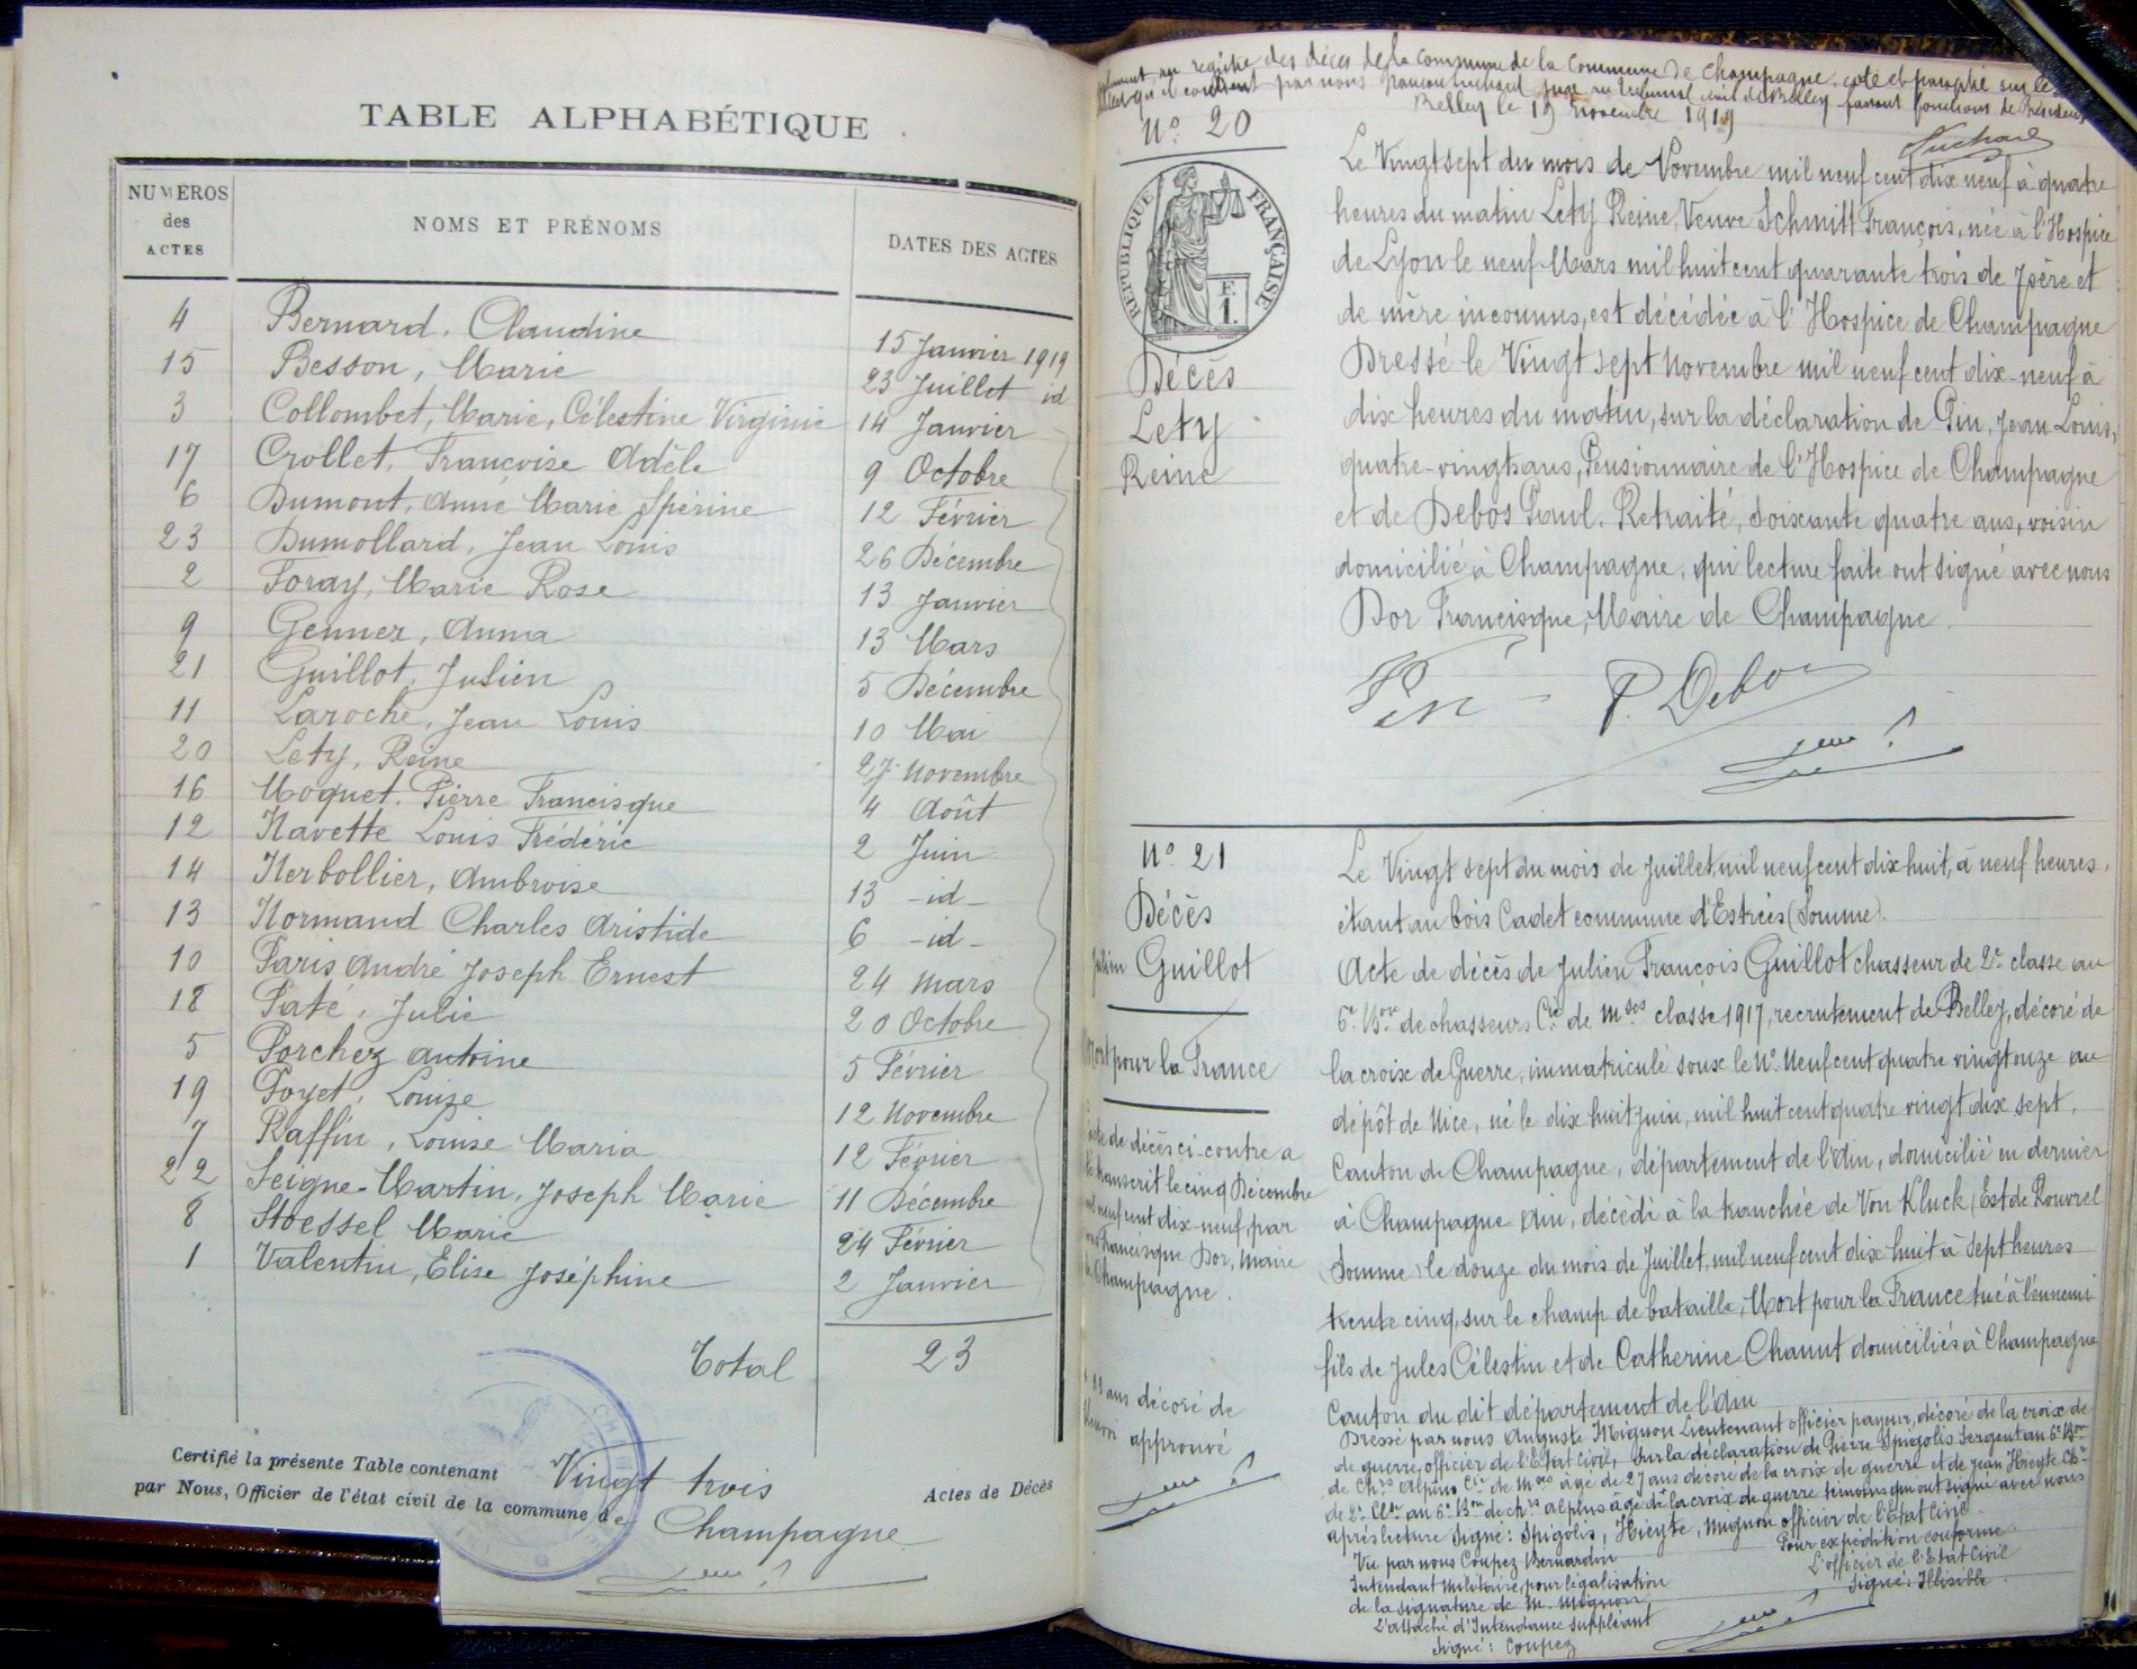 TABLE ALPHABÉTIQUE
NUMÉROS
des
ACTES
NOMS ET PRÉNOMS
DATES DES ACTES
4 Bernard. Claudine 15 Janvier 1919
15 Besson, Marie 23 Juillet id
3 Collombet, Marie, Célestine Virginie 14 Janvier
17 Crollet, Françoise Adèle 9 Octobre
6 Dumont, Anne Marie Spérine 12 Février
23 Dumollard, Jean Louis 26 Décembre
2 Foray, Marie Rose 13 Janvier
9 Genner, Anna 13 Mars
21 Guillot, Julien 5 Décembre
11 Laroche, Jean Louis 10 Mai
20 Lety, Reine 27 Novembre
16 Moquet. Pierre Francisque 4 Août
12 Navette Louis Frédéric 2 Juin
14 Nerbollier, Ambroise 13 -id-
13 Normand Charles Aristide 6 -id-
10 Paris André Joseph Ernest 24 Mars
18 Paté, Julie 20 Octobre
5 Porchez Antoine 5 Février
19 Poyet, Louise 12 Novembre
7 Raffin, Louise Maria 12 Février
22 Seigne-Martin, Joseph Marie 11 Décembre
8 Stoessel Marie 24 Février
1 Valentin, Elise Joséphine 2 Janvier
Total 23
Certifié la présente Table contenant Vingt trois Actes de Décès
par Nous, Officier de l'état civil de la commune de Champagne
registre des décès de la commune de la commune de Champagne. coté et paraphé sur le
qu'il contient par nous juge au tribunal civil de Belley faisant fonctions de Président
Belley le 19 novembre 1919
No 20
RÉPUBLIQUE FRANÇAISE
F.
1.
Décès
Lety
Reine
Le Vingt sept du mois de Novembre mil neuf cent dix neuf à quatre
heures du matin Lety Reine, Veuve Schmitt François, née à l'Hospice
de Lyon le neuf Mars mil huit cent quarante trois de père et
de mère inconnus, est décédée à l'Hospice de Champagne
Dressé le Vingt sept Novembre mil neuf cent dix-neuf à
dix heures du matin, sur la déclaration de Pin, Jean Louis,
quatre-vingts ans, Pensionnaire de l'Hospice de Champagne
et de Debos Paul. Retraité, soixante quatre ans, voisin
domicilié à Champagne, qui lecture faite ont signé avec nous
Dor Francisque, Maire de Champagne.
Pin P. Debos
No 21
Décès
Julien Guillot
Mort pour la France
acte de décès ci-contre a
transcrit le cinq Décembre
neuf cent dix-neuf, par
Francisque Dor, Maire
Champagne.
ans décoré de
approuvé
Le Vingt sept du mois de Juillet, mil neuf cent dix huit, à neuf heures.
étant au bois Cadet commune d'Estrées (Somme).
Acte de décès de Julien François Guillot chasseur de 2e classe au
6e Bon de chasseurs Cie de mses classe 1917, recrutement de Belley, décoré de
la croix de Guerre, immatriculé sous le No Neuf cent quatre vingt onze au
dépôt de Nice, né le dix huit juin, mil huit cent quatre vingt dix sept,
Canton de Champagne, département de l'Ain, domicilié en dernier
à Champagne Ain, décédé à la tranchée de Von Kluck, Est de Rouvrel
(Somme) le douze du mois de Juillet, mil neuf cent dix huit à sept heures
trente cinq, sur le champ de bataille, Mort pour la France tué à l'ennemi
fils de Jules Célestin et de Catherine Chanut domiciliés à Champagne
Canton du dit département de l'Ain
Dressé par nous Auguste Mignon Lieutenant officier payeur, décoré de la croix de
de guerre, officier de l'Etat Civil, sur la déclaration de Pierre Spigolis Sergent au 6e Bon
de Chrs Alpins Cie de Mses âgé de 27 ans décoré de la croix de guerre et de Jean Hieyte Chr
de 2e Clse au 6e Bon de chrs alpins âgé de la croix de guerre témoins qui ont signé avec nous
après lecture Signé: Spigolis, Hieyte, Mignon officier de l'Etat Civil.
Vu par nous Coupez Bernardin
Intendant Militaire, pour légalisation
de la signature de M. Mignon
L'attaché d'Intendance suppléant
Signé: Coupez
Pour expédition conforme
L'officier de l'Etat Civil
Signé: Illisible.